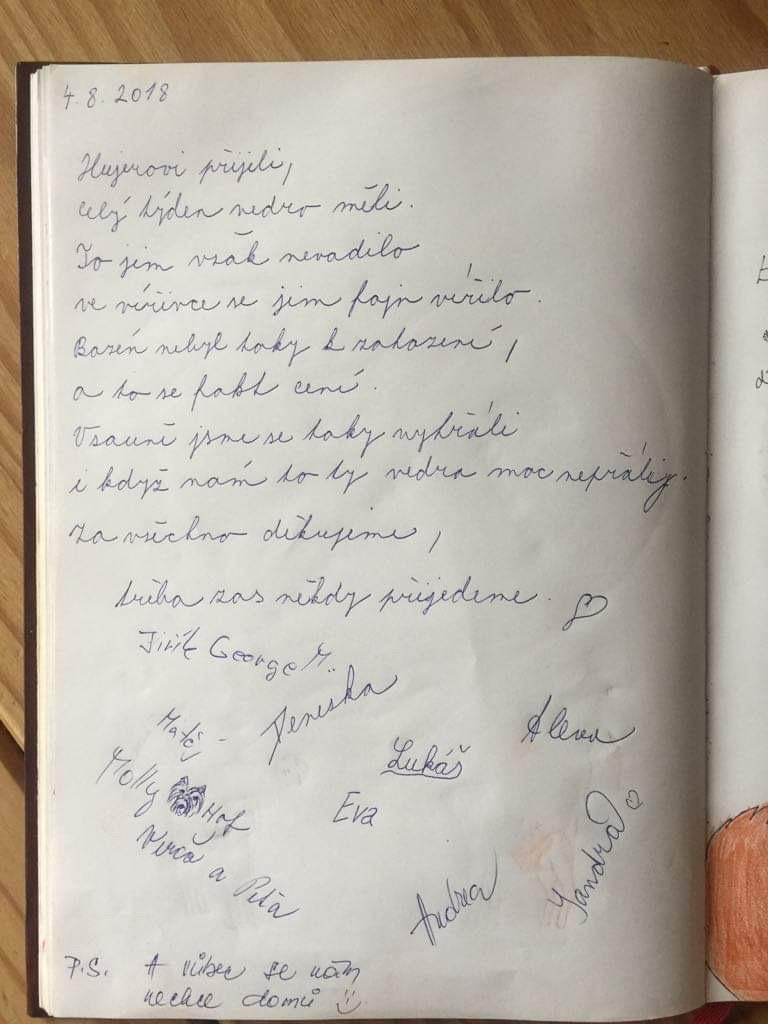 4. 8. 2018
Hujerovi přijeli,
celý týden vedro měli.
To jim však nevadilo
ve vířivce se jim fajn vířilo.
Bazén nebyl taky k zahození,
a to se fakt cení.
Vsauně jsme se taky vyhřáli
i když nám to ty vedra moc nepřály.
Za všechno děkujeme,
třeba zas někdy přijedeme.
Jiřík George M.
Matěj - Deniska
Alena
Lukáš
Molly Haf
Eva
Verča a Péťa
Andrea
Sandra
P.S. A vůbec se nám
nechce domů